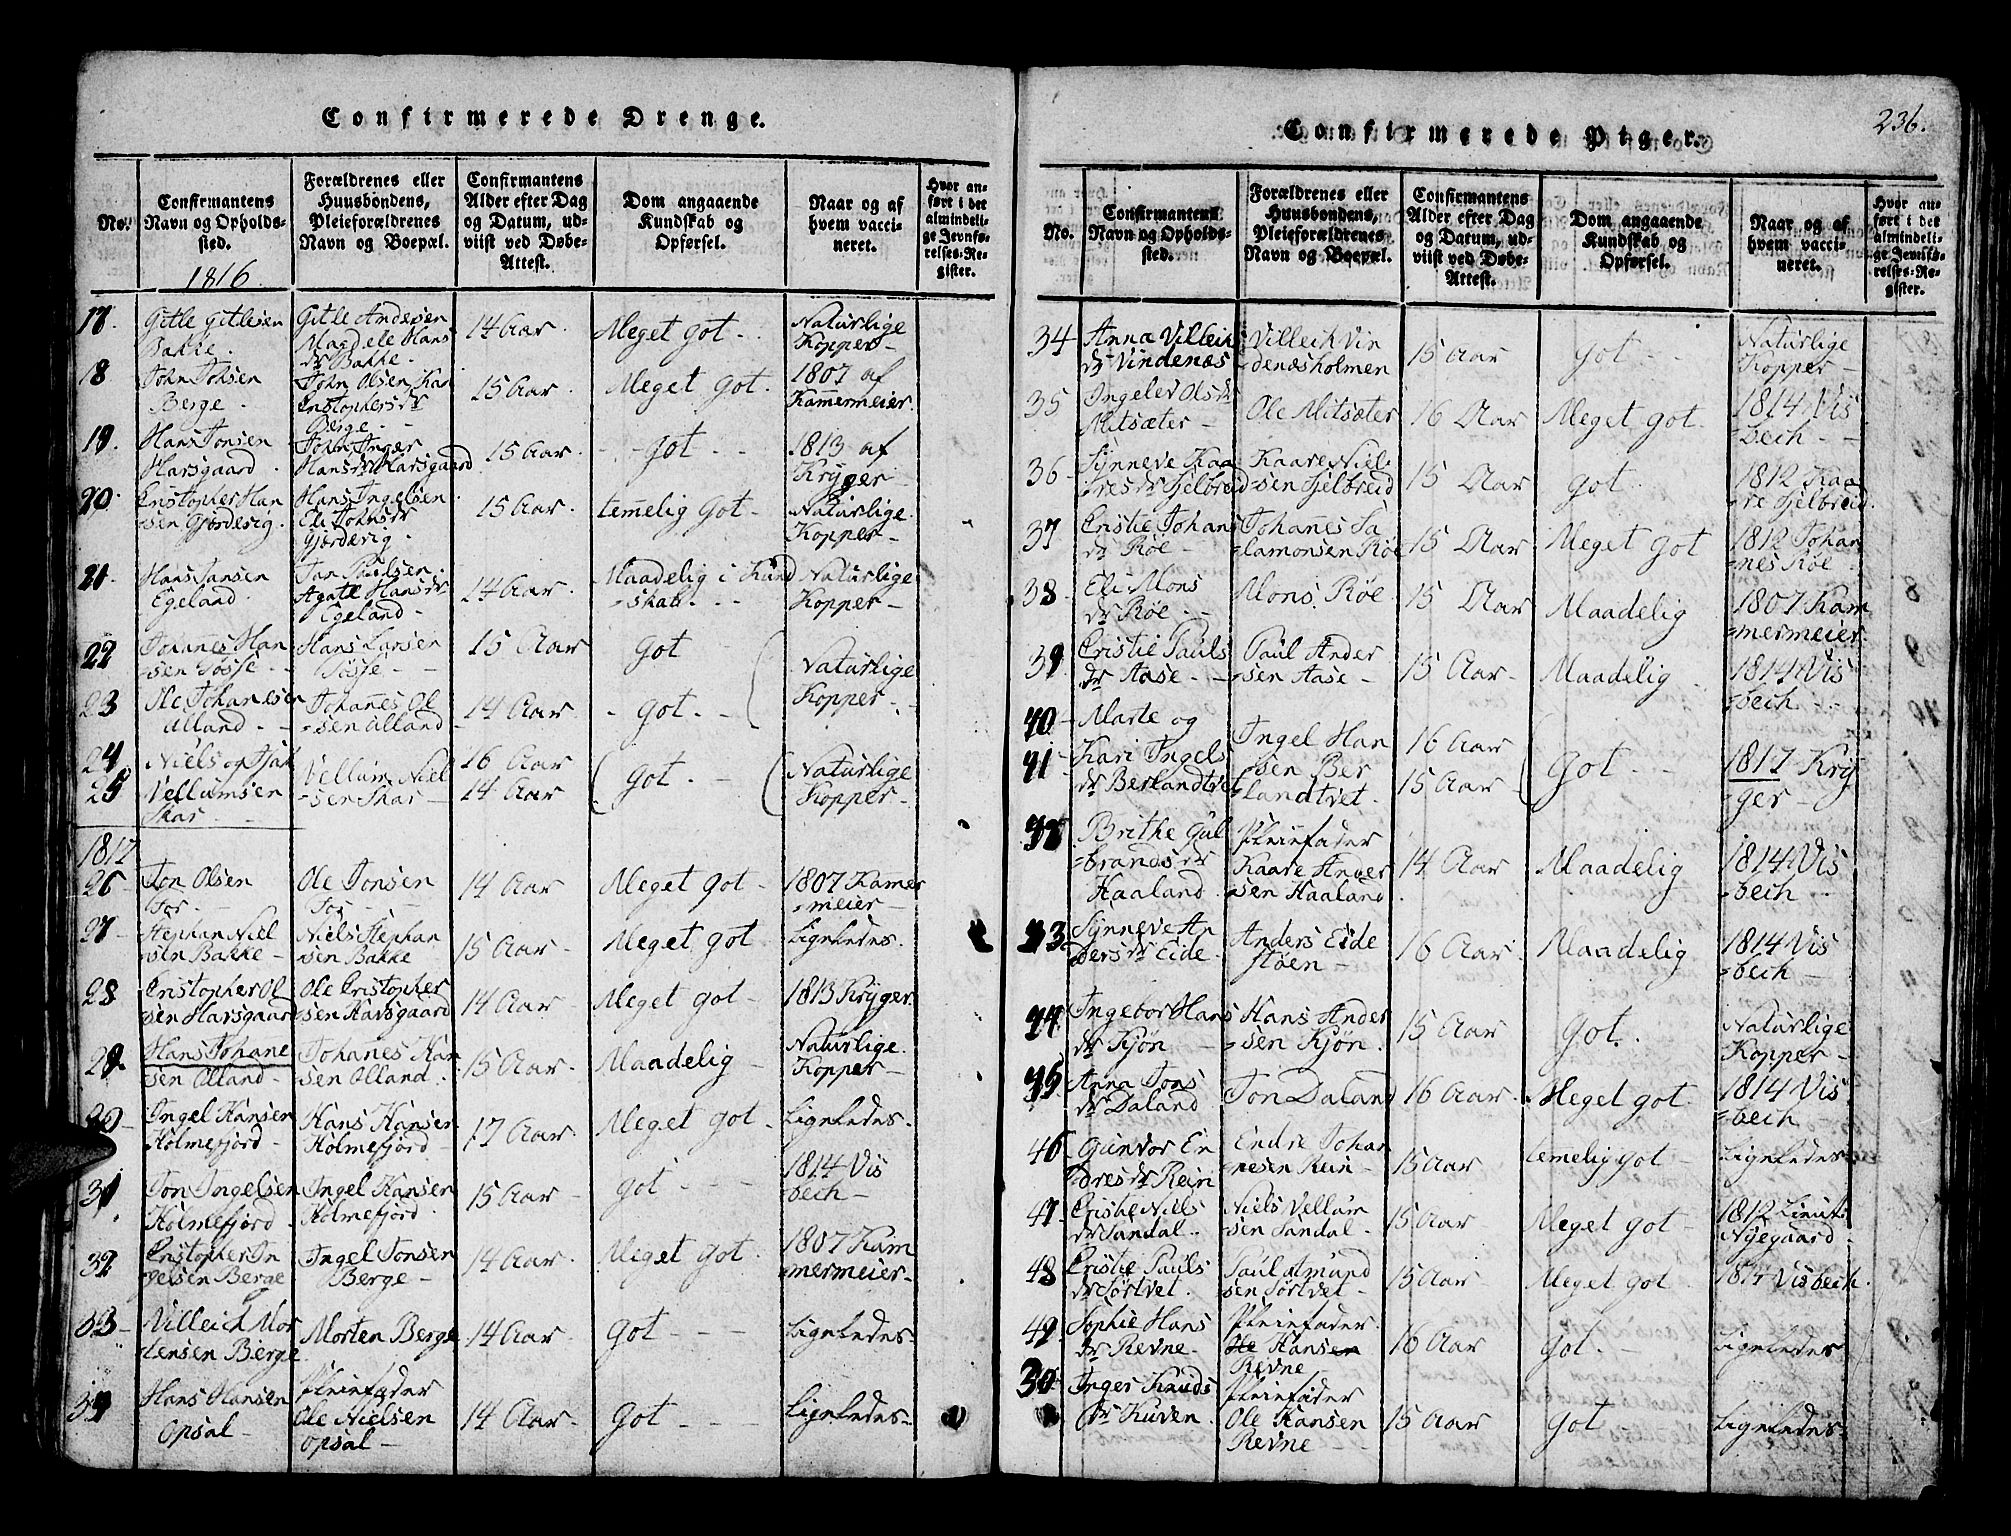 Confirmerede Drenge.
No.
Confirmantens
Navn og Opholds-
sted.
Forældrenes eller
Huusbondens,
Pleieforældrenes
Navn og Boepæl.
Confirmantens
Alder efter Dag
og Datum, ud-
viist ved Døbe-
Attest.
Dom angaaende
Kundskab og
Opførsel.
Naar og af
hvem vacci-
neret.
Hvor an-
ført i det
almindeli-
ge Jevnfø-
relses-Re-
gister.
1816.
17.
Gitle Gitlesen
Bakke.
Gitle Andersen
Magdele Hans
dr Bakke.
14 Aar.
Meget got.
Naturlige
Kopper
18
John Johsen
Berge.
John Olsen, Kari
Cristophersdr
Berge.
15 Aar.
Meget got.
1807 af
Kamermeier.
19.
Hans Jonsen
Harsgaard.
John, Inger
Hansdr Harsgaard
15 Aar.
got
1813 af
Kryger
20.
Cristopher Han
sen Gjerdevig.
Hans Ingelsen
Eli Johnsdr
Gjerdevig.
15 Aar.
temelig got
Naturlige
Kopper
21.
Hans Jansen
Egeland.
Jan
Agate Hansdr
Egeland
14 Aar.
Maadelig i Kund
skab.
Naturlige
Kopper
22
Johannes Han
sen Tosse
Hans Larsen
Tosse
15 Aar
got
Naturlige
Kopper
23
Ole Johanesen
Alland
Johanes Ol
sen Alland
14 Aar
got
24
25
Niels og
Vellumsen
Skar.
Vellum Niel
sen Skar
16 Aar
14 Aar
got.
Naturlige
Kopper
1817
26
Jon Olsen
Tor.
Ole Jonsen
Tor
14 Aar
Meget got
1807 Kamer
meier
27
Stephan Niel
sen Bakke
Niels Stephan
sen Bakke
15 Aar
Meget got
Ligeledes.
28
Cristopher Ol
sen Harsgaard
Ole Cristopher
sen Harsgaard
14 Aar
Meget got
1813 Kryger.
29.
Hans Johane
sen Olland
Johanes Han
sen Olland.
15 Aar.
Maadelig
Naturlige
Kopper
30
Ingel Hansen
Holmefjord
Hans Hansen
Holmefjord
17 Aar.
Meget got.
Ligeledes.
31
Jon Ingelsen
Holmefjord.
Ingel Hansen
Holmefjord.
15 Aar.
got
1814 Vis
bech
32
Cristopher In
gelsen Berge
Ingel Jonsen
Berge
14 Aar.
Meget got.
1807 Kam
mermeier
33
Villeich Mor
tensen Berge
Morten Berge
14 Aar.
got
Ligeledes.
34
Hans Hansen
Opsal
Pleiefader
Ole Nielsen
Opsal
14 Aar.
got
Ligeledes.
236.
Confirmerede Piger.
No.
Confirmantens
Navn og Opholds-
sted.
Forældrenes eller
Huusbondens,
Pleieforældrenes
Navn og Boepæl.
Confirmantens
Alder efter Dag
og Datum, ud-
viist ved Døbe-
Attest.
Dom angaaende
Kundskab og
Opførsel.
Naar og af
hvem vacci-
neret.
Hvor an-
ført i det
almindeli-
ge Jevnfø-
relses-Re-
gister.
34
Anna Villeich
dr Vindenæs
Villeich Vin
denæsholmen
15 Aar
got
Naturlige
Kopper
35
Ingelev Olsdr
Mitsæter
Ole Mitsæter
16 Aar
Meget got.
1814 Vis
bech
36
Synneve Kaa
resdr Hjelbreid
Kaare Niel
sen Hjelbreid
15 Aar
got.
1812 Kaa
re Hjelbreid.
37
Cristie Johans
dr Røe
Johanes Sa
lamonsen Røe
15 Aar
Meget got
1812 Johan
nes Røe.
38
Eli Mons
dr Røe
Mons Røe
15 Aar
Maadelig
1807 Kam
mermeier.
39
Cristie Pauls
dr Aase
Paul Ander
sen Aase
15 Aar
Maadelig
1814 Vis
bech
40
41
Marte og
Kari Ingels
dr Berlandtvet
Ingel Han
sen Ber
landtvet.
16 Aar
15 Aar
got
1817 Kry
ger
42
Brithe Gul
brandsdr
Haaland
Pleiefader
Kaare Ander
sen Haaland
14 Aar
Maadelig
1814 Vis
bech
43
Synneve An
dersdr Eide.
Anders Eide
støen
16 Aar
Maadelig
1814 Vis
bech
44
Ingebor Hans
dr Kjøn
Hans Ander
sen Kjøn.
15 Aar
got.
Naturlige
Kopper
45
Anna Jons
dr Daland
Jon Daland
16 Aar
Meget got
1814 Vis
bech
46
Gunvor En
dresdr Rein
Endre Johan
nesen Rein
15 Aar
temelig got
Ligeledes
47
Cristie Niels
dr Sandal.
Niels Vellum
sen Sandal.
15 Aar
Meget got
1812 Lieut.
Nyegaard
48
Cristie Pauls
dr Tørtvet.
Paul Amund
sen Tørtvet
15 Aar
Meget got
1814 Visbech
49
Sophie Hans
dr Revne
Pleiefader
Ole Hansen
Revne
16 Aar
got.
Ligeledes
50
Inger Knuds
dr Kuven.
Pleiefader
Ole Hansen
Revne
15 Aar
got
Ligeledes